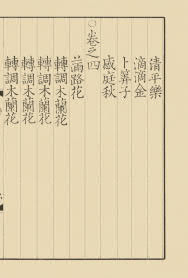 清平樂
滴滴金
卜算子
感庭秋
○卷之四
滿路花
轉調木蘭花
轉調木蘭花
轉調木蘭花
轉調木蘭花